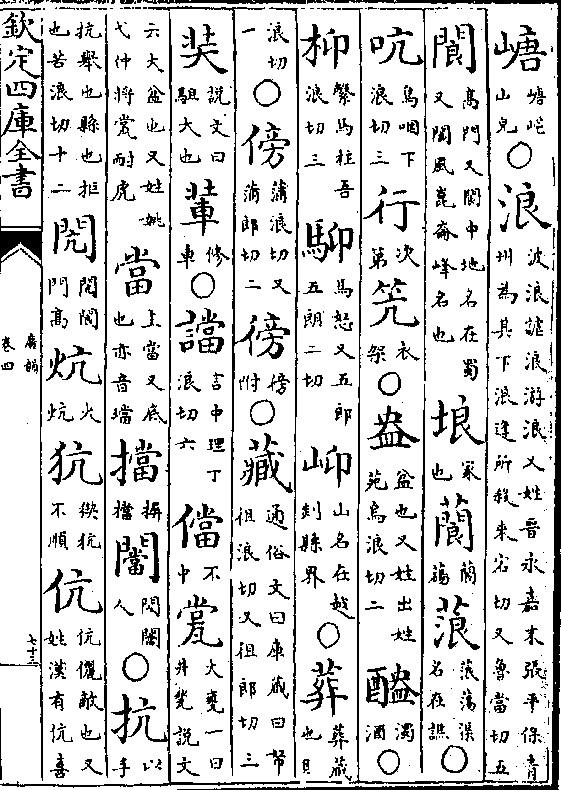 嵣嵣𡵓山皃○浪波浪謔浪游浪又姓晉永嘉末張平保青州為其下浪逢所殺来宕切又魯當切五
閬高門又閬中地名在蜀又閬風崑崙峰名也埌冢也䕞䕞蕩蒗蒗蕩渠名在譙○
吭鳥咽下浪切三行次第笐衣架○盎盆也又姓出姓苑烏浪切二醠濁酒○
枊繫馬柱吾浪切三䭹馬怒又五郎五朗二切岇山名在越剡縣界○葬葬藏也則
浪切一○傍蒲浪切又蒲郎切二徬徬附○藏通俗文曰庫藏曰帑徂浪切又徂郎切三
奘說文曰駔大也𨍴修車○讜言中理丁浪切六儅不中瓽大甕一曰井甃說文
云大盆也又姓姚弋仲將瓽耐虎當主當又底也亦音璫擋摒擋闣閌闣人○抗以手
抗舉也縣也拒也苦浪切十二閌閌閬門高炕火炕犺㹸犺不順伉伉儷敵也又姓漢有伉喜
欽定四庫全書
廣韻
卷四
七十三